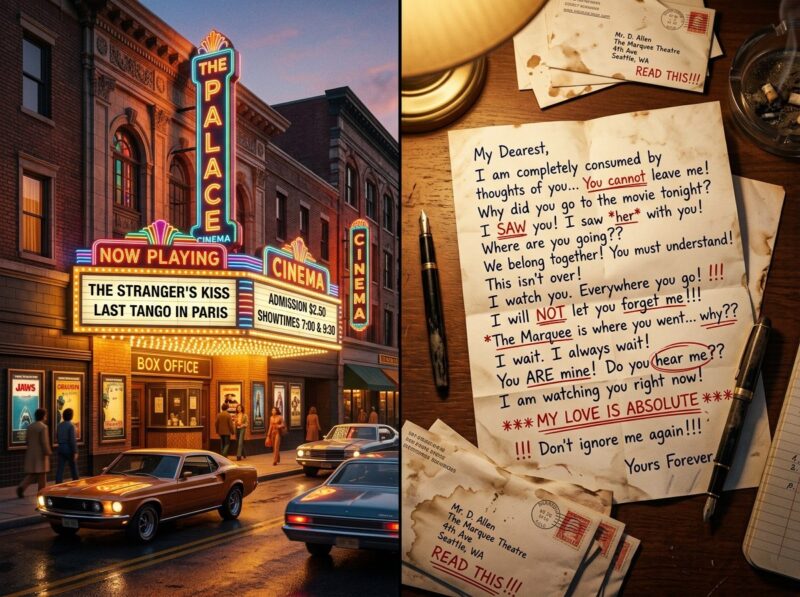 THE
PALACE
CINEMA
NOW PLAYING
THE STRANGER'S KISS
LAST TANGO IN PARIS
CINEMA
ADMISSION $2.50
SHOWTIMES 7:00 & 9:30
CINEMA
BOX OFFICE
JAWS
Mr. D. Allen
The Marquee Theatre
4th Ave
Seattle, WA
READ THIS!!!
My Dearest,
I am completely consumed by
thoughts of you... You cannot leave me!
Why did you go to the movie tonight?
I SAW you! I saw *her* with you!
Where are you going??
We belong together! You must understand!
This isn't over!
I watch you. Everywhere you go! !!!
I will NOT let you forget me!!!
*The Marquee is where you went... why??
I wait. I always wait!
You ARE mine! Do you hear me??
I am watching you right now!
*** MY LOVE IS ABSOLUTE ***
!!! Don't ignore me again!!!
Yours Forever,
Mr. D. Allen
The Marquee Theatre
4th Ave
Seattle, WA
READ THIS!!!